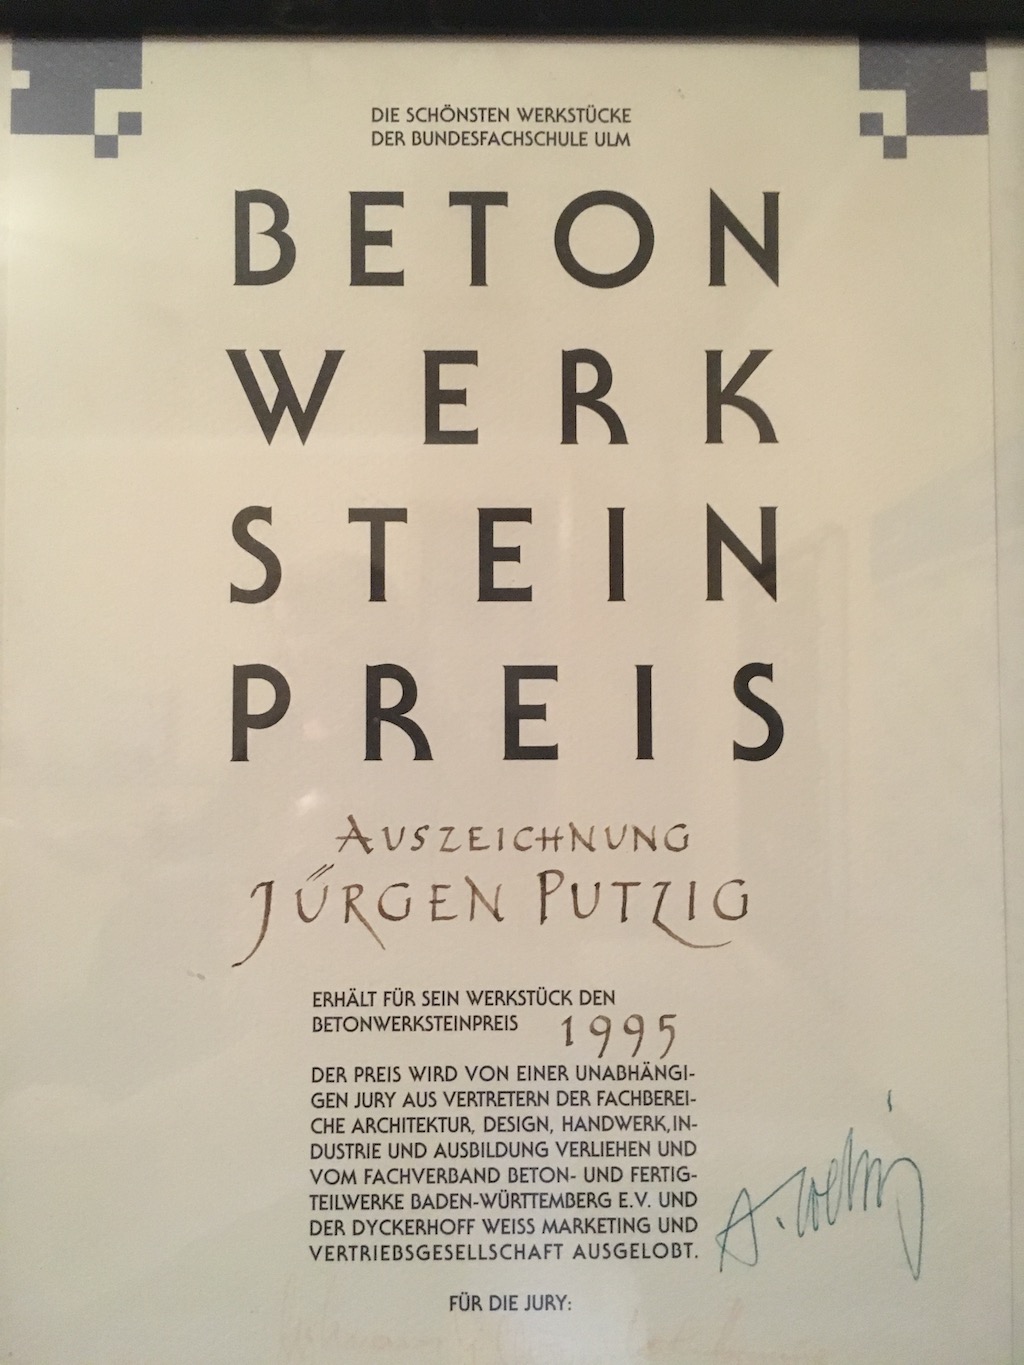 DIE SCHÖNSTEN WERKSTÜCKE
DER BUNDESFACHSCHULE ULM
BETON
WERK
STEIN
PREIS
AUSZEICHNUNG
JÜRGEN PUTZIG
ERHÄLT FÜR SEIN WERKSTÜCK DEN
BETONWERKSTEINPREIS 1995
DER PREIS WIRD VON EINER UNABHÄNGI-
GEN JURY AUS VERTRETERN DER FACHBEREI-
CHE ARCHITEKTUR, DESIGN, HANDWERK, IN-
DUSTRIE UND AUSBILDUNG VERLIEHEN UND
VOM FACHVERBAND BETON- UND FERTIG-
TEILWERKE BADEN-WÜRTTEMBERG E.V. UND
DER DYCKERHOFF WEISS MARKETING UND
VERTRIEBSGESELLSCHAFT AUSGELOBT.
FÜR DIE JURY: